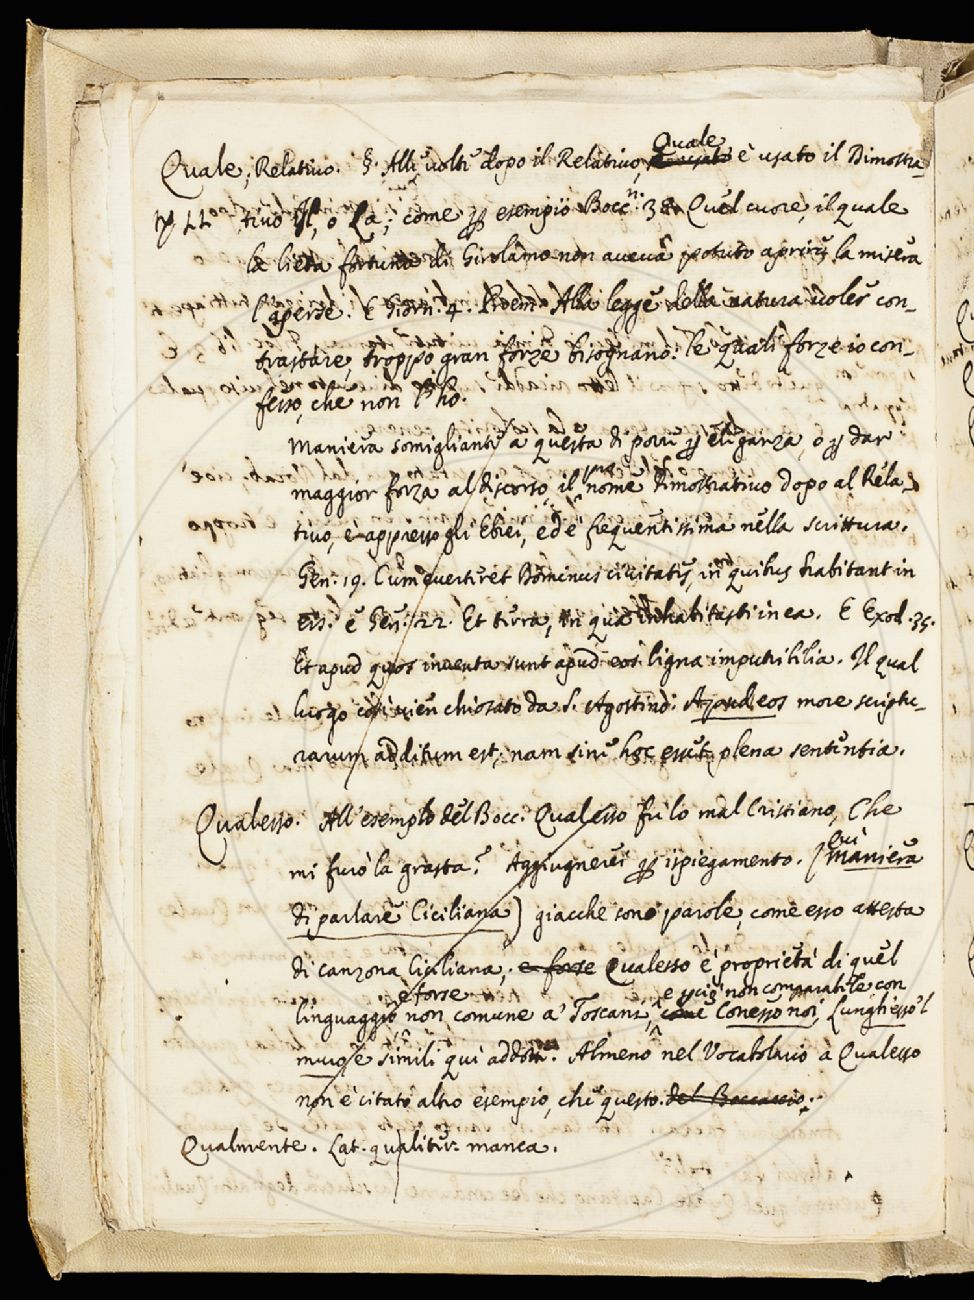 Quale
Quale, Relativo. §. Alle volte dopo il Relativo, è usato è usato il Dimostra-
tivo Il, o La; come per esempio Bocc. n. 38. Quel cuore, il quale
la lieta fortuna di Girolamo non aveva potuto aprire, la misera
l'aperse. E Giorn. 4. Proem. Alla legge della natura voler con-
trastare, troppo gran forze bisognano. le quali forze io con-
fesso, che non l'ho.
Maniera somigliante a questa di porre per eliganza, o per dar
maggior forza al discorso, il nome Dimostrativo dopo al Rela-
tivo, è appresso gli Ebrei, ed è frequentissima nella scrittura.
Gen. 19. Cum everteret Dominus civitates, in quibus habitant in
eis. e Gen. 22. Et terra, in qua inhabitasti in ea. E Exod. 35.
Et apud quos inventa sunt apud eos ligna imputribilia. Il qual
luogo così vien chiosato da S. Agostino: Apud eos more scriptu-
rarum additum est; nam sine hoc esset plena sententia.
Qualesso. All'esempio del Bocc. Qualesso fu lo mal Cristiano, Che
mi furò la grasta? Aggiugnerei per ispiegamento. (Qui maniera
di parlare Ciciliana) giacche sono parole, come esso attesta
di canzona Ciciliana, e forse Qualesso è proprietà di quel
è forse e perciò non comparabile con
linguaggio, non comune a' Toscani, come Conesso noi, Lunghesso 'l
muro, e simili qui addotti. Almeno nel Vocabolario a Qualesso
non è citato altro esempio, che questo. del Boccaccio.
Qualmente. Lat. qualiter. manca.